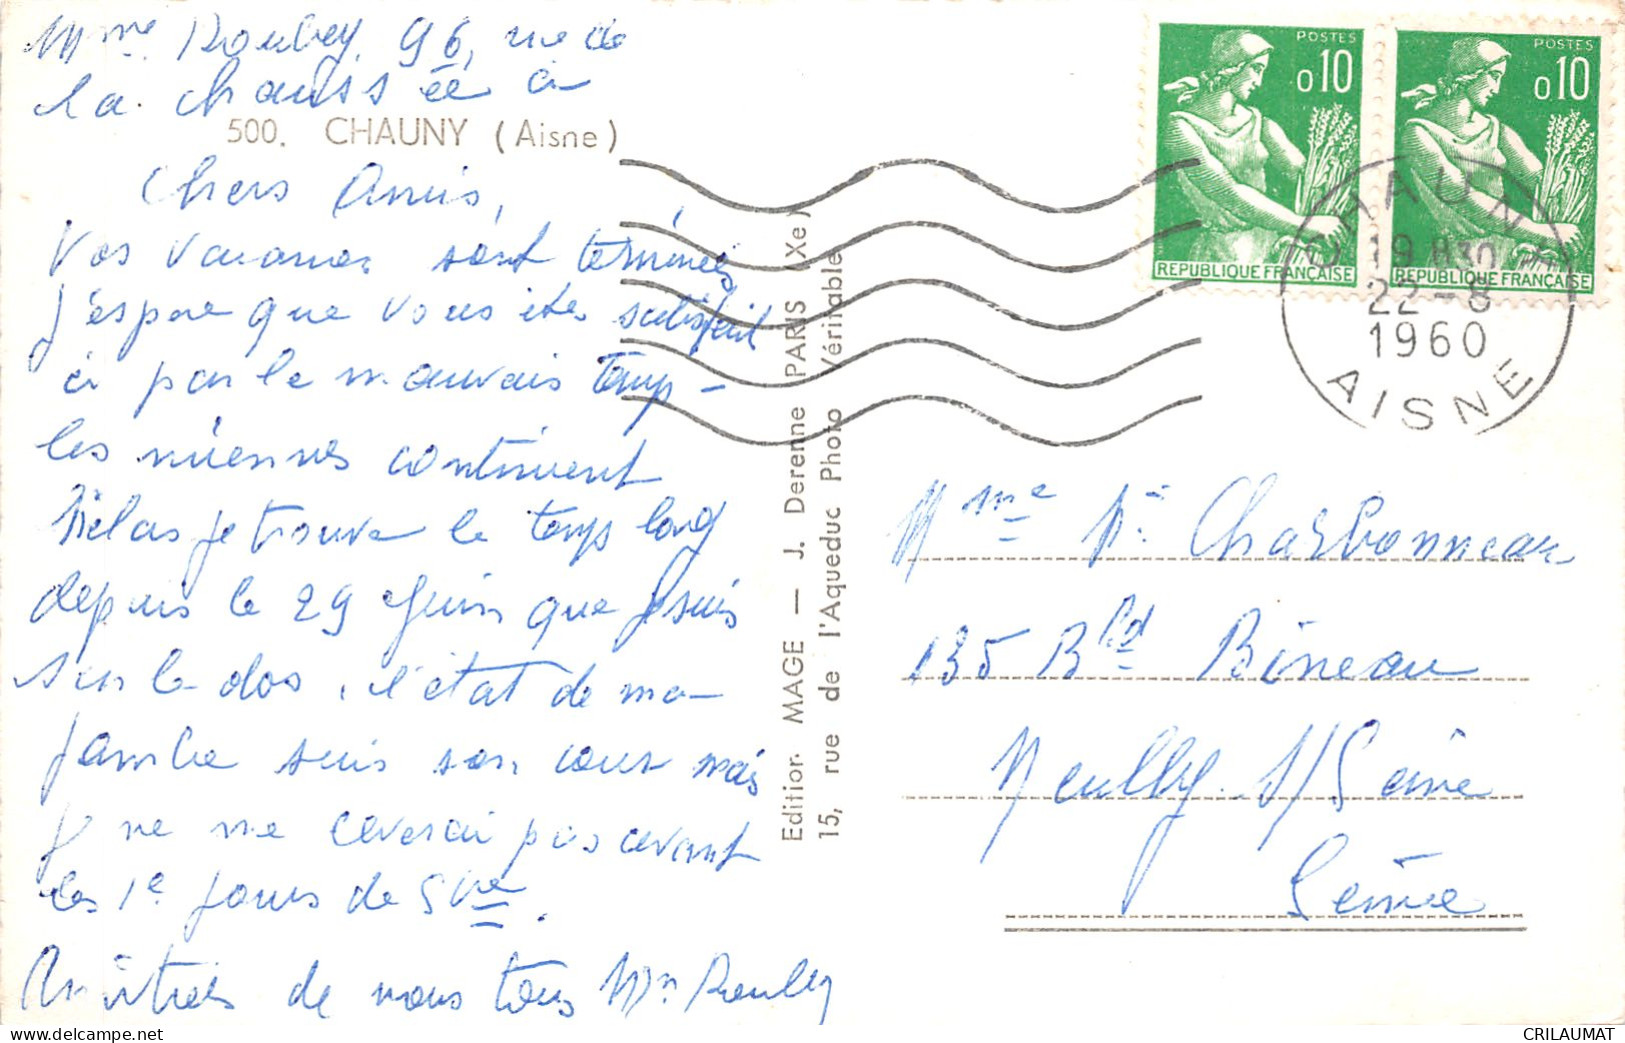 Mme Roubey, 96, rue de
la chaussée ci
500. CHAUNY (Aisne)
Chers Amis,
Vos vacances sont terminées
J'espère que vous êtes satisfait
ci par le mauvais temps -
les miennes continuent
Hélas je trouve le temps long
depuis le 29 Juin que je suis
sur le dos, l'état de ma
jambe suis son cours mais
je ne me lèverai pas avant
les 1e jours de Sbre.
Amitiés de nous tous Mm Roubey
Edition MAGE — J. Derenne PARIS (Xe)
15, rue de l'Aqueduc Photo Véritable
POSTES
0,10
REPUBLIQUE FRANÇAISE
POSTES
0,10
REPUBLIQUE FRANÇAISE
CHAUNY
19 H30
22-8
1960
AISNE
Mme Charbonneau
135 Bld Bineau
Neuilly s/Seine
Seine
CRILAUMAT